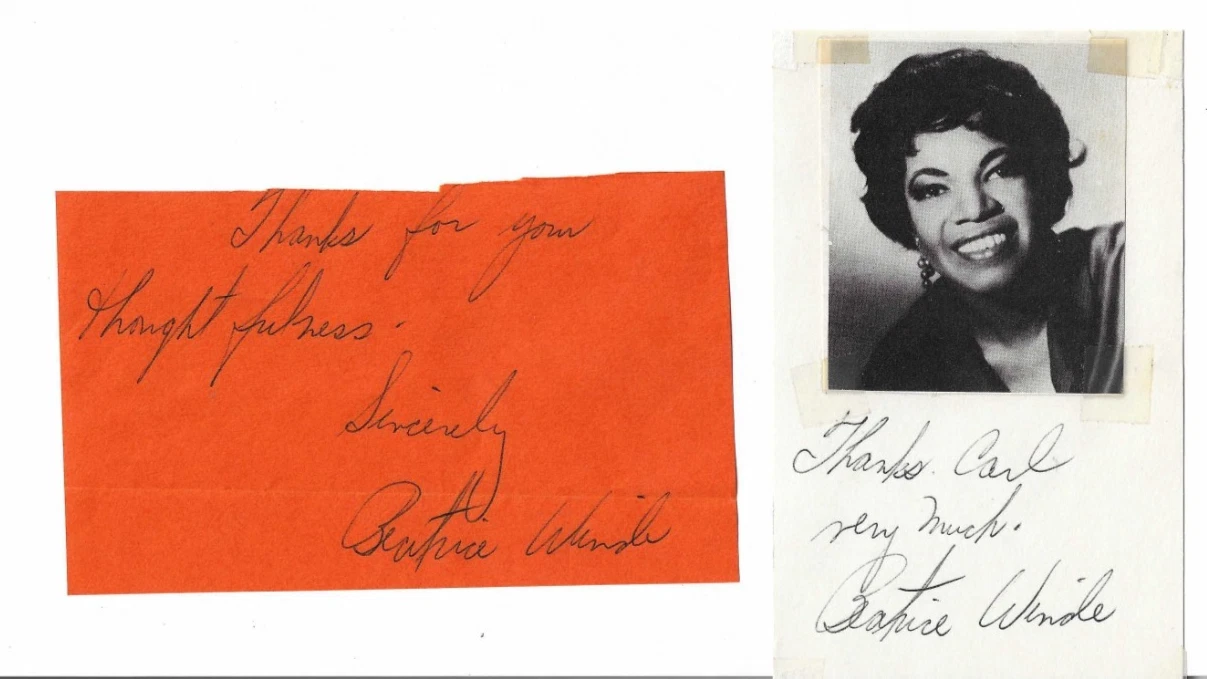 Thanks for your
thoughtfulness.
Sincerely
Beatrice Winde
Thanks. Carl
very much.
Beatrice Winde